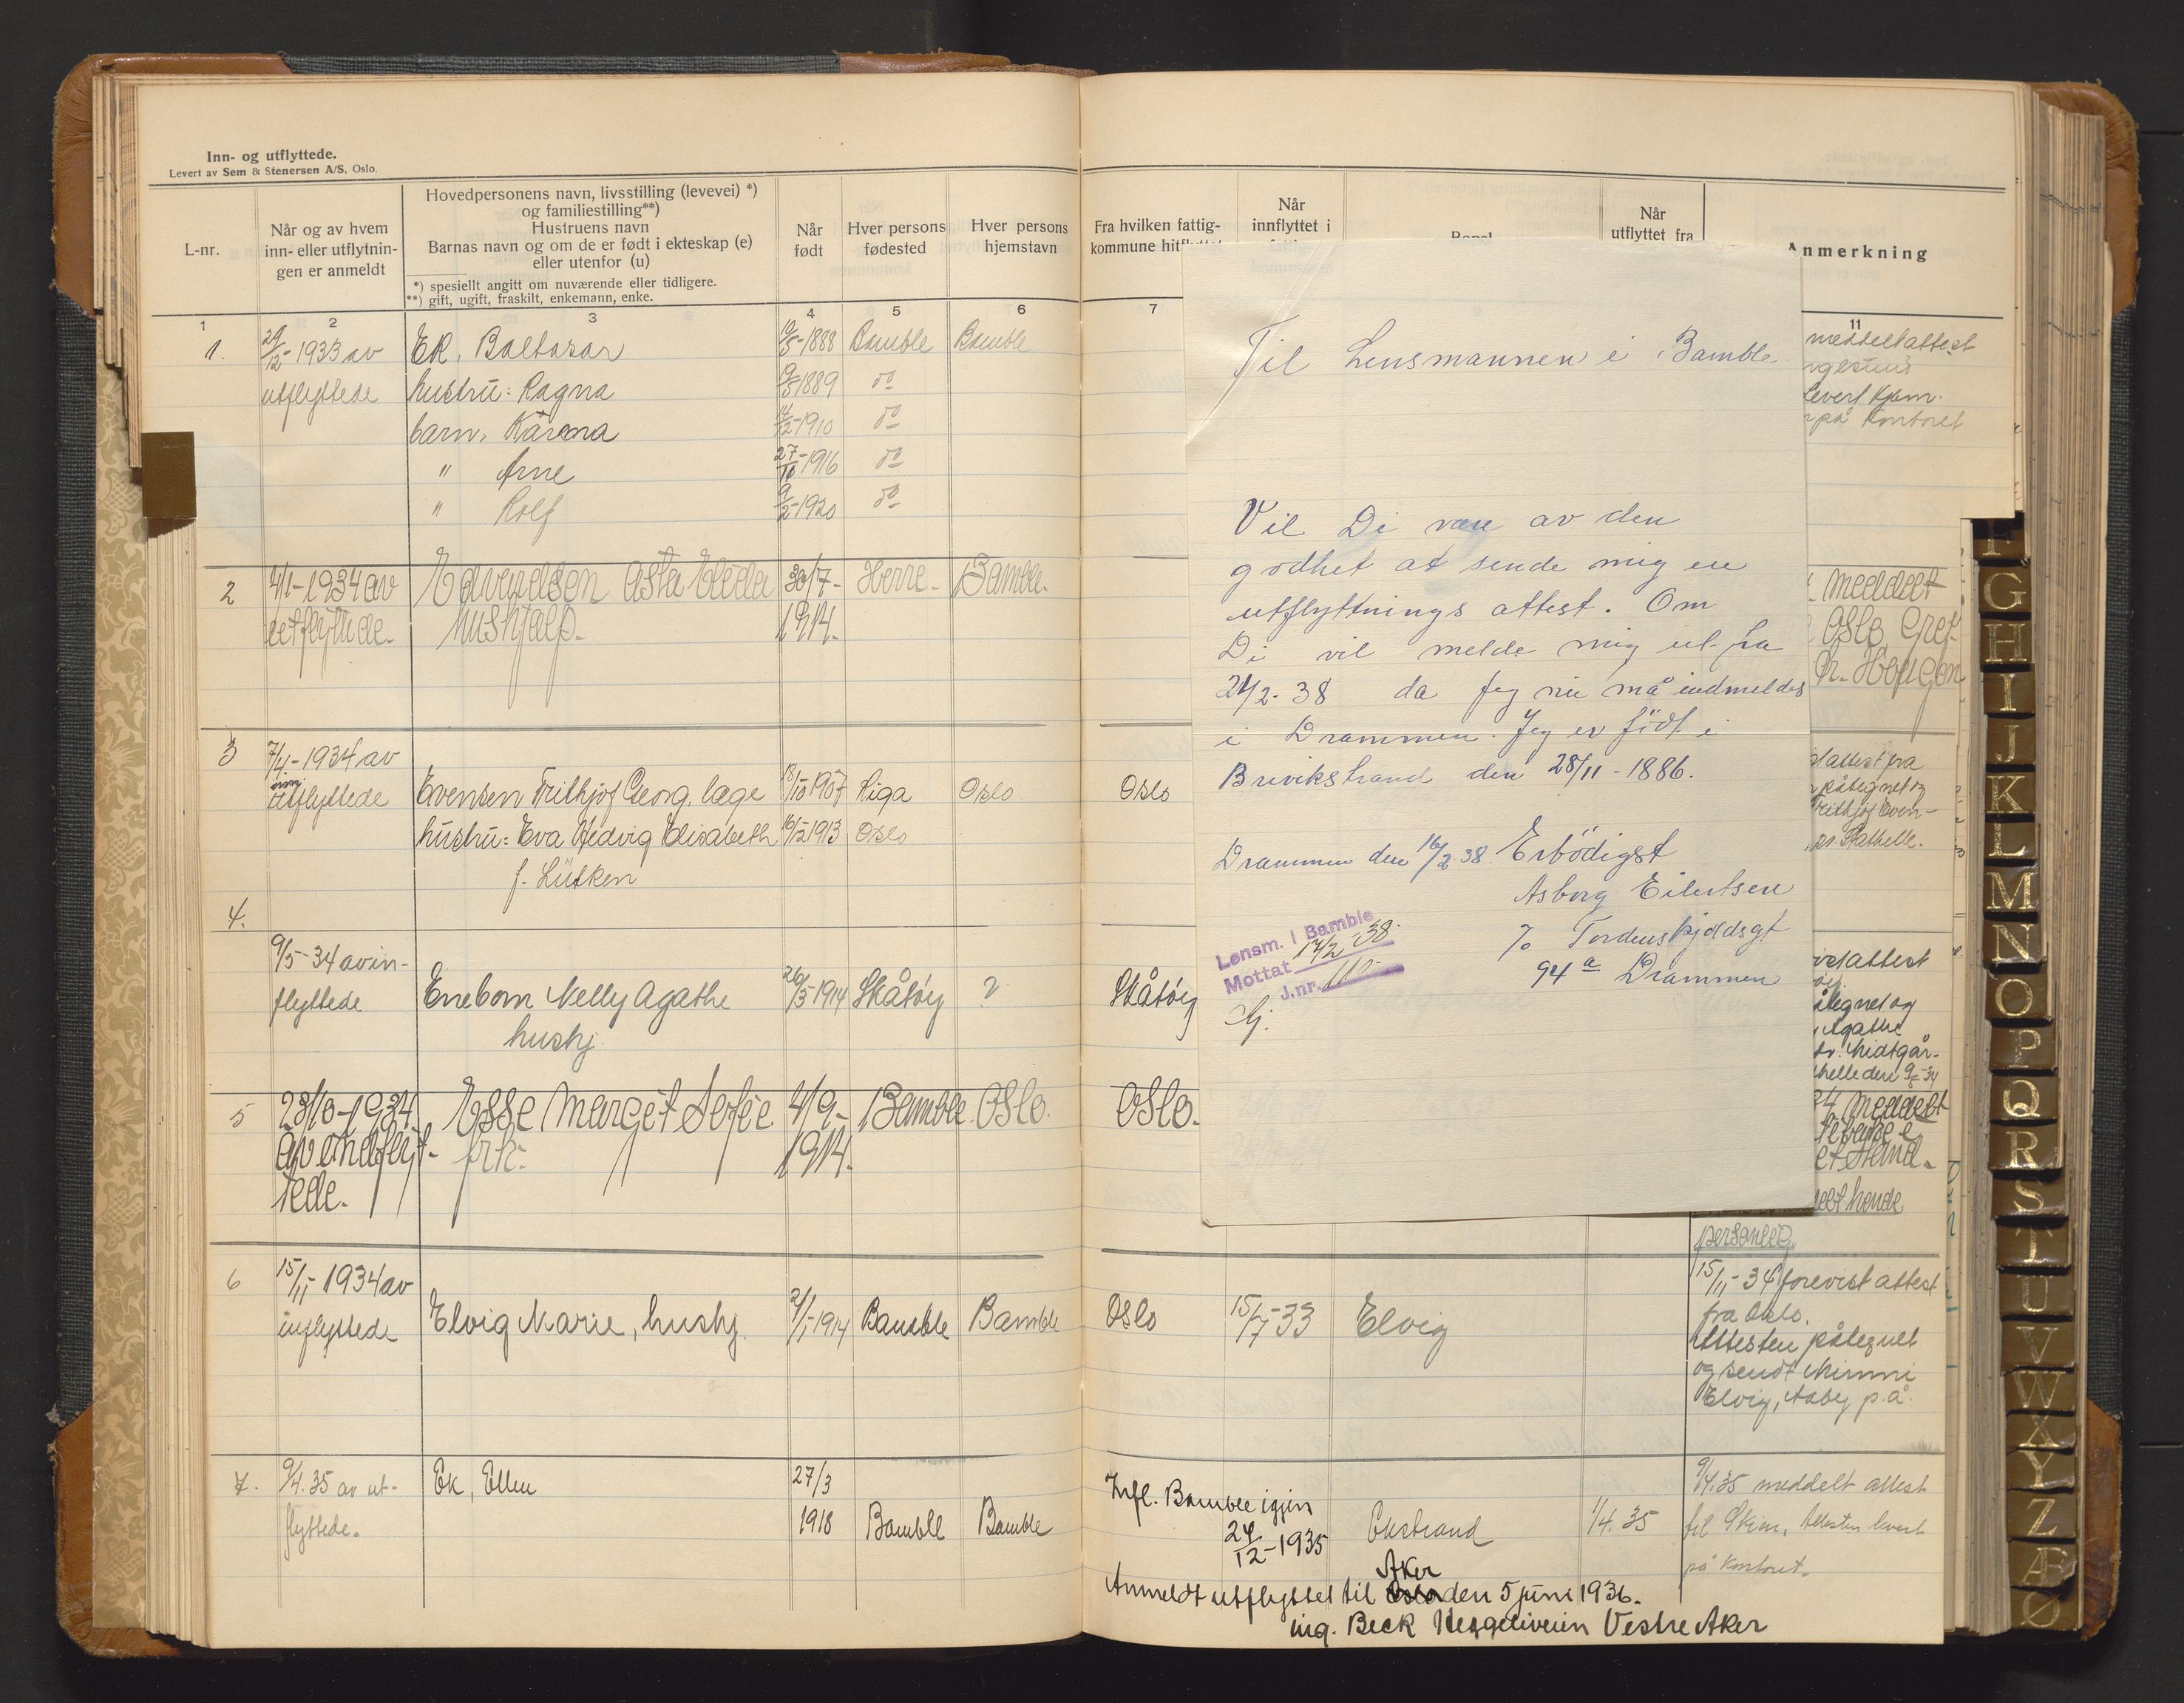 Inn- og utflyttede.
Levert av Sem & Stenersen A/S, Oslo.
L-nr.
Når og av hvem
inn- eller utflytnin-
gen er anmeldt
Hovedpersonens navn, livsstilling (levevei) *)
og familiestilling**)
Hustruens navn
Barnas navn og om de er født i ekteskap (e)
eller utenfor (u)
*) spesiellt angitt om nuværende eller tidligere.
**) gift, ugift, fraskilt, enkemann, enke.
Når
født
Hver persons
fødested
Hver persons
hjemstavn
1 2 3 4 5 6
1. 29/12-1933 av Ek, Baltasar 19/5-1888 Bamble Bamble
utflyttede hustru: Ragna 19/5 1889 do
barn, Karena 14/2-1910 do
" Arne 27/10-1916 do
" Rolf 9/2-1920 do
2 4/1-1934 av Edvardsen Asta 30/7- Herre- Bamble.
utflyttede- hushjalp. 1914.
3 7/4-1934 av
inn
utflyttede Evensen Frithjof Georg, læge 18/10 1907 Riga Oslo
hustru: Eva Hedvig Elisabeth 16/12 1913 Oslo
f. Lütken
4.
9/5-34 av in-
flyttede Enebom Nelly Agathe 26/3-1914 Skåtøy ?
hushj.
5 23/10-1934 Esse Margit Sofie 4/9- Bamble Oslo.
av indflyt- frk. 1914.
tede.
6 15/11-1934 av
inflyttede Elvig Marie, hushj. 2/1-1914 Bamble Bamble
7. 9/4.35 av ut- Ek, Ellen 27/3
flyttede. 1918 Bamble Bamble
Fra hvilken fattig-
kommune
Når
innflyttet i
Når
utflyttet fra
Anmerkning
7
11
Oslo
Skåtøy
Oslo.
meddelt attest
på kontoret
meddelt
Oslo
attest fra
påtegnet og
Stathelle.
attest
Agathe
meddelt
hende
personlig.
Oslo 15/7-33 Elvig
15/11-34 forevist attest
fra Oslo.
Attesten påtegnet
og sendt Mimmi
Elvig, Aaby p.å.
Infl. Bamble igjen
24/12-1935 Ekstrand 1/4.35
9/4.35 meddelt attest
til Skien, Attesten levert
på kontoret.
Aker
Anmeldt utflyttet til Oslo den 5 juni 1936.
ing. Beck Vestre Aker
Til Lensmannen i Bamble.
Vil Di være av den
godhet at sende mig en
utflyttnings attest. Om
Di vil melde mig ut fra
24/2-38 da jeg nu må indmeldes
i Drammen. Jeg er födt i
Brevikstrand den 28/11-1886.
Drammen den 16/2-38. Erbödigst
Asborg Eilertsen
℅ Tordenskjoldsgt
94 a Drammen
Lensm. i Bamble
Mottat 17/2-38.
J.nr. 110
F
G
H
I
J
K
L
M
N
O
P
Q
R
S
T
U
V
W
X
Y
Z
Æ
Ø